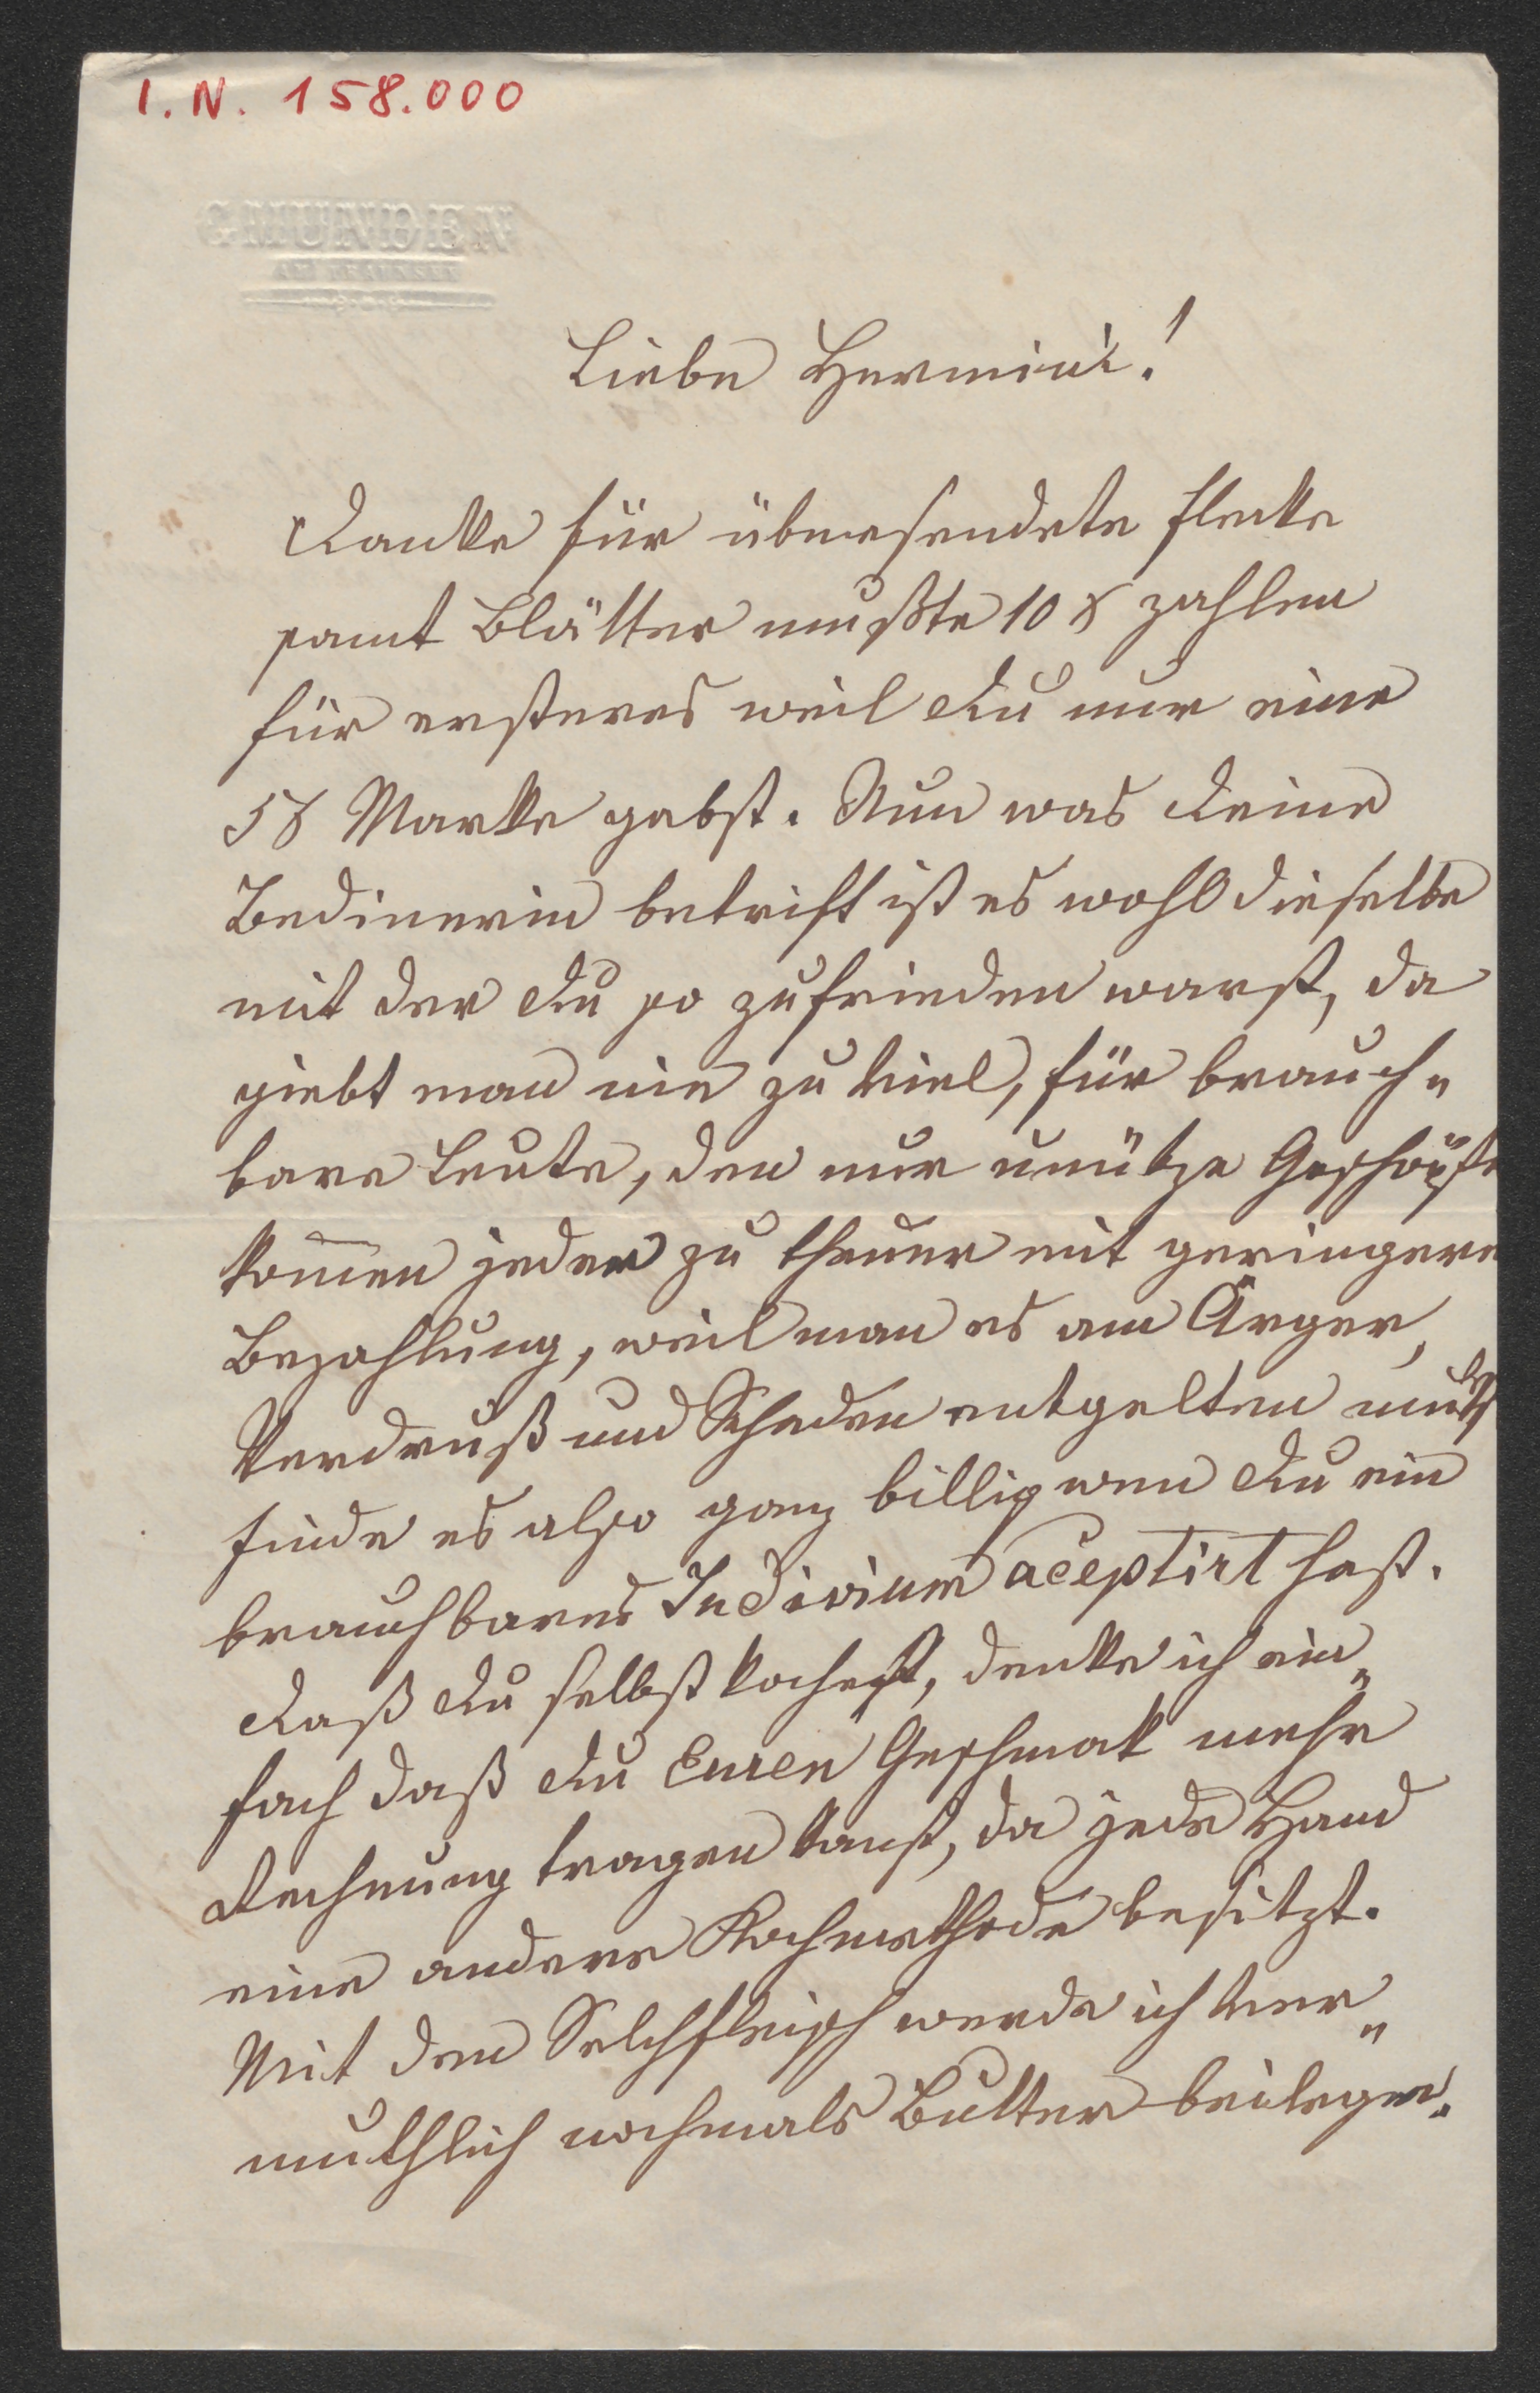 I. N. 158.000
GMUNDEN
AM TRAUNSEE
Liebe Hermine!
Danke für übersendete Flecke
samt Blätter mußte 10 x zahlen
für ersteres weil Du nur eine
5 x Marke gabst. Nun was Deine
Bedinerin betrift ist es wohl dieselbe
mit der Du so zufrieden warst, da
giebt man nie zu viel, für brauch„
bare Leute, den nur unütze Geschöpfe
kom̄en jeder zu theuer mit geringere
Bezahlung, weil man es am Ärger,
Verdruß und Schaden entgelten muß
finde es also ganz billig wen Du ein
brauchbares Indivium aceptirt hast.
Daß Du selbst kochest, denke ich ein„
fach daß Du Euren Geschmak mehr
Rechnung tragen kanst, da jede Hand
eine andere Kochmethode besitzt.
Mit dem Selchfleisch werde ich ver„
muthlich nochmals Butter beilegen.